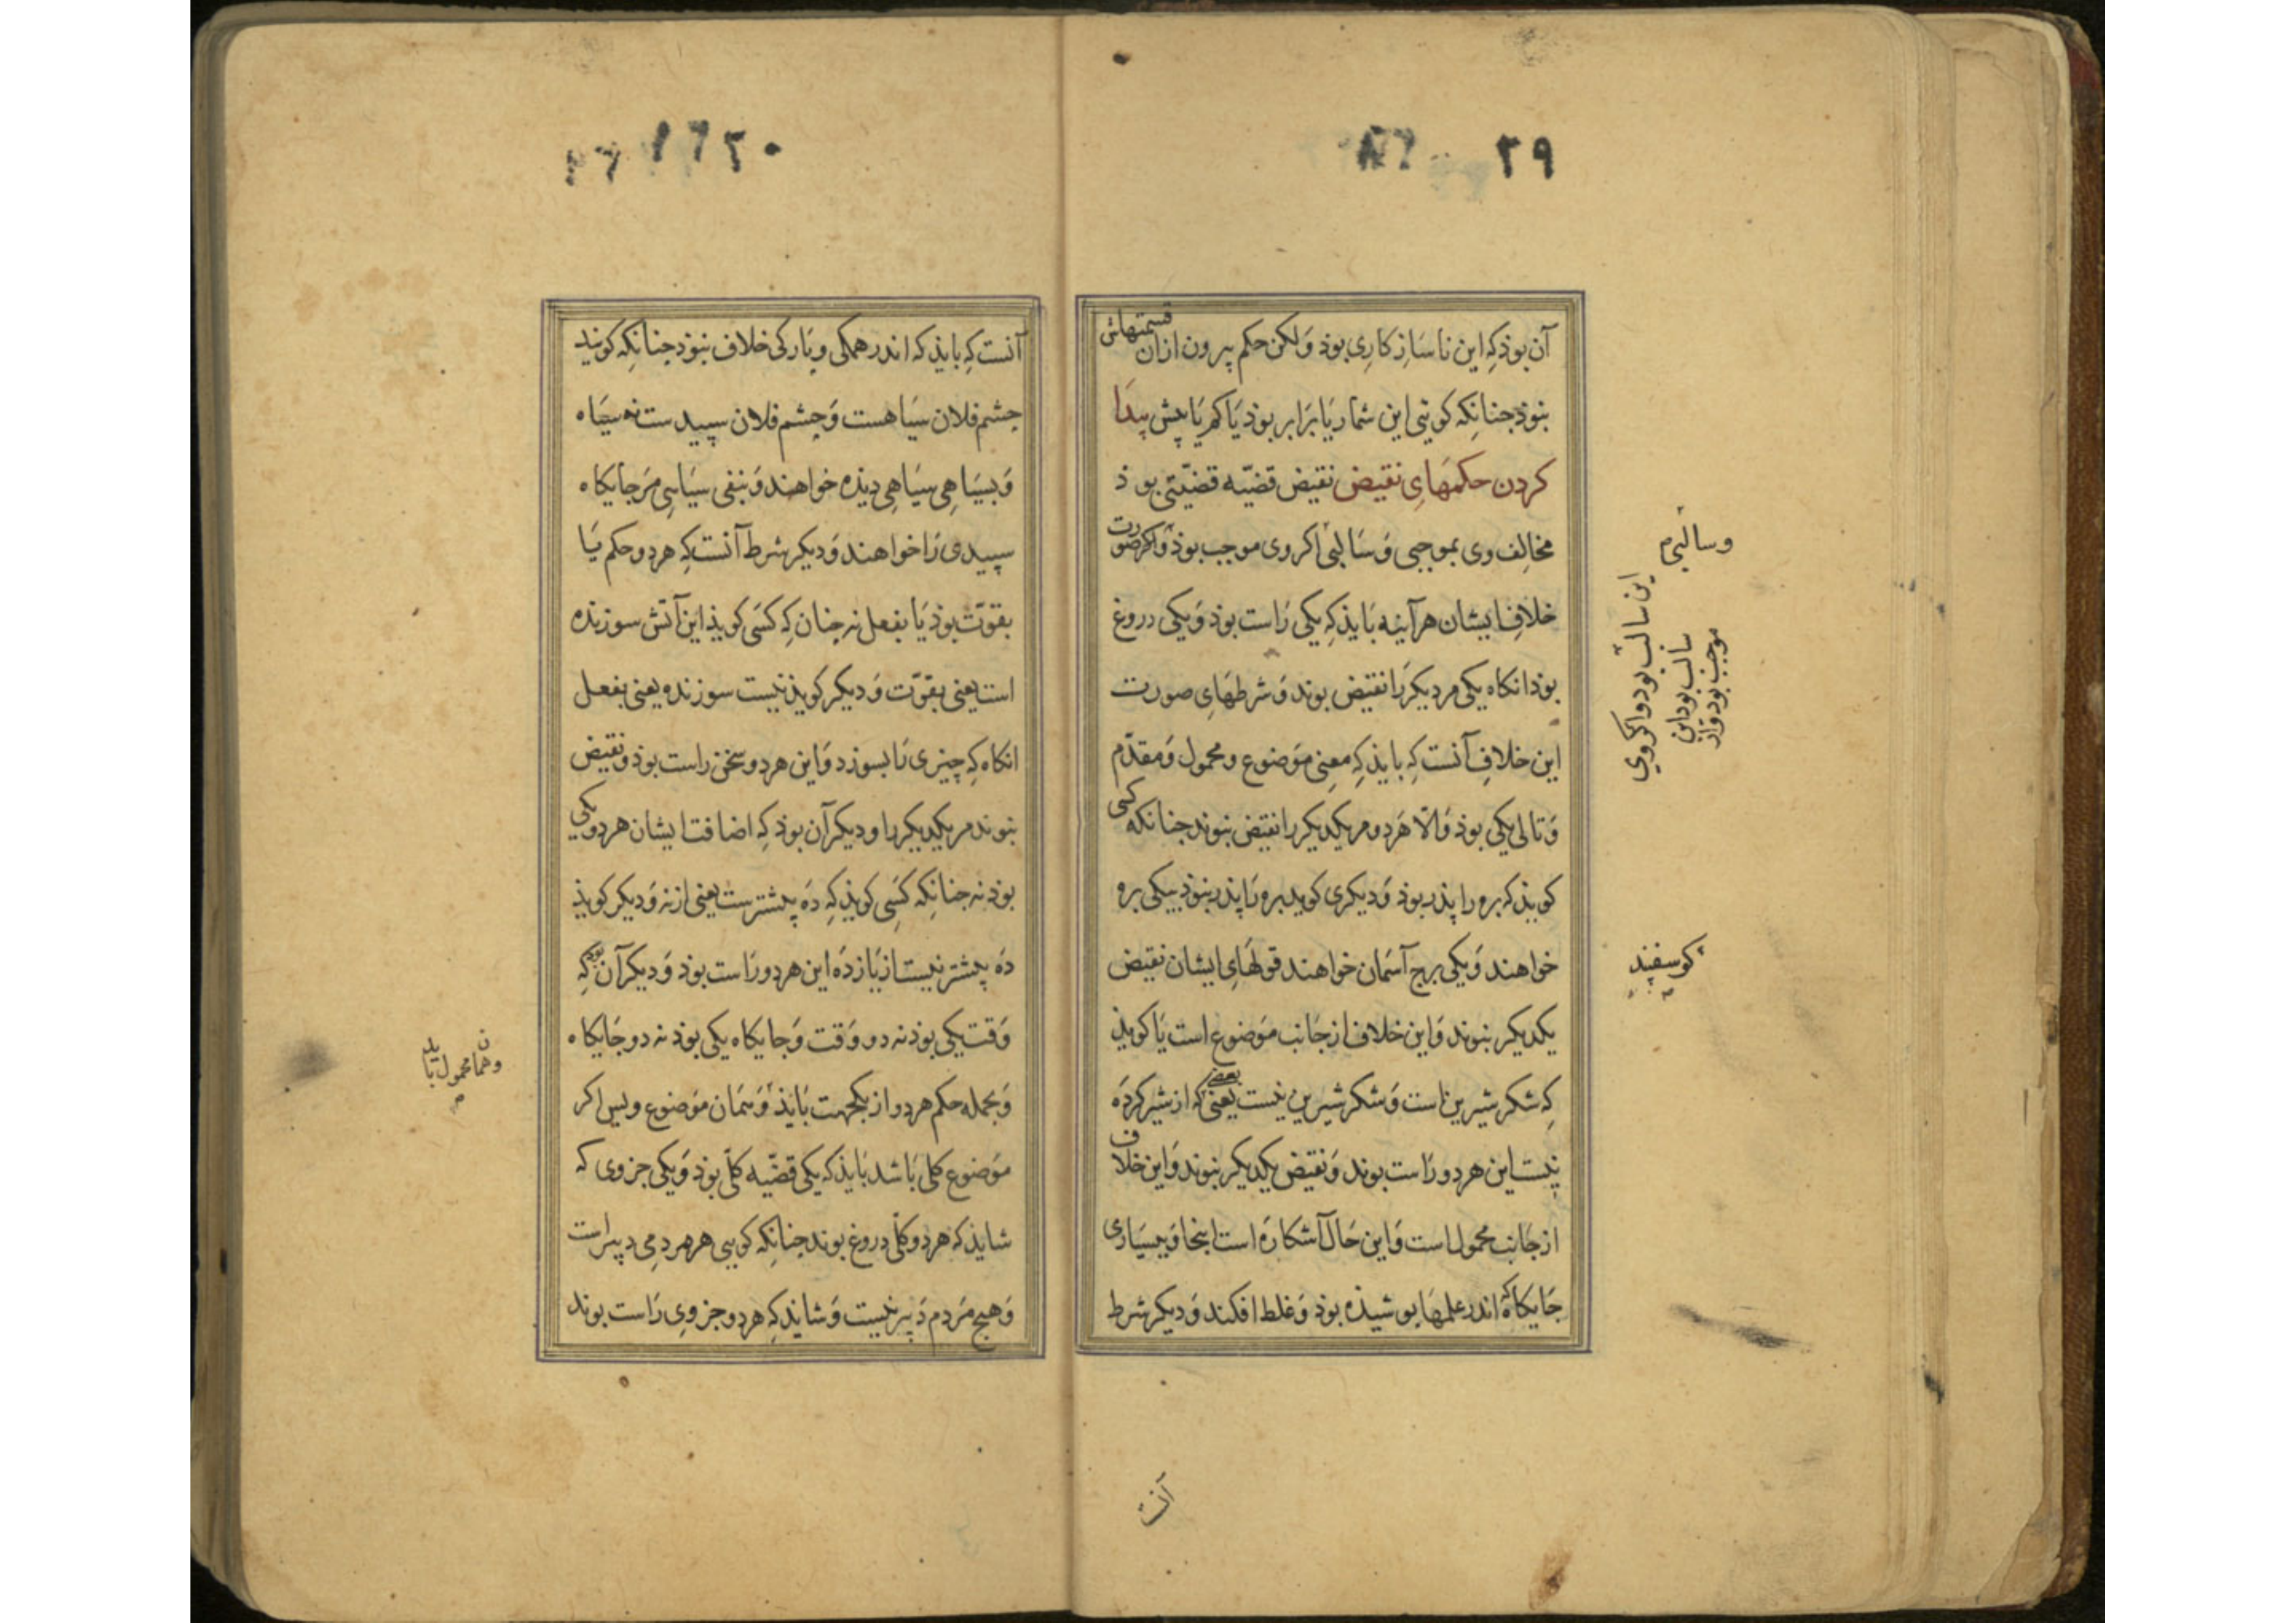 ٢٩
آن بوذ کِه این ناسَازکاری بوذ وَلکن حکم بیرون ازان قسمتهاش
نبوذ جنانکه کویی این شمار یَا بَرَابر بوذ یَا کم یَا بیش پیدَا
کردن حکمهَایِ نقیض نقیض قضیّه قضیّتی بوذ
مخالِف وی بموجبی وَسَالبی اکر وی موجب بوذ وَاکر صورت
خلافِ ایشان هرآینه بَایذ کِه یکی رَاست بوذ وَیکی دروغ
بوذ انکاه یکی مر دیکر رَا نقیض بوند وَشرطهَایِ صورت
این خلافِ آنست کِه بایذ کِه معِنیِ مَوضوع و محمول وَمقدّم
وَتالی یکی بوذ وَالّا هَردو مر یکدیکر را نقیض نبوند جنانکه کسی
کویذ که بره را پذر بوذ وَدیکری کوید بره رَا پذر نبوذ بیکی بره
خواهند وَیکی برج آسمَان خواهند قولهَایِ ایشان نقیض
یکدیکر نبوند وَاین خلاف از جَانب مَوضوع است یَا کویذ
کِه شکر شیرین است وَشکر شیرین نیست یعنی که از شیر کردَه
نیست این هردو رَاست بوند وَنقیض یکدیکر نبوند وَاین خلاف
از جَانِب محمول است وَاین حَال آشکارَه است اینجا وَبسیَاری
جَایکاه که اندر علمهَا بوشیذه بوذ وَغلط افکند وَدیکر شرط
وسالبی
این سالب بود و اکر وی
سالب بود این
موجب بود و از
کوسفند
آنست
٢٠
آنست کِه بایذ که اندر همکی و پَارکی خلاف نبوذ جنانکِه کویند
جشم فلان سیَاهست وَجشم فلان سپیدست نه سیَاه
وَبسیَاهی سیَاهیِ دیذه خواهند وَبنفی سیَاسی مَر جَایکاه
سپیدی رَا خواهند وَدیکر شرط آنست کِه هردو حکم یَا
بقوّت بوذ یَا بفعل نه جنان کِه کسَی کویذ این آتش سوزنده
است یعنی بقوّت وَدیکر کویذ نیست سوزنده یعنی بفعل
انکاه کِه چیزی نَابسوزد وَاین هردو سخن راست بوذ ونقیض
نبوند مر یکدیکر را و دیکر آن بوذ کِه اضافت ایشان هردو یکی
بوذ نه جنانکِه کسَی کویذ کِه دَه پیشترست یعنی از نه وَدیکر کویذ
دَه پیشتر نیست از یَازدَه این هردو رَاست بوذ وَدیکر آن بوذ کِه
وَقت یکی بوذ نه دو وَقت وَجایکاه یکی بوذ نه دو جَایکاه
وَبجمله حکم هردو از یکجهت بَایذ وَهمَان مَوضوع وبس اکر
مَوضوع کلی بَاشد بَایذ که یکی قضیّه کلّی بوذ وَیکی جزوی که
شایذ که هردو کلّی دروغ بوند جنانکِه کویی هر مردمی دبیراست
وَهیج مَردم دَبیر نیست وَشایذ کِه هردو جزوی رَاست بوند
وهمان محمول باید